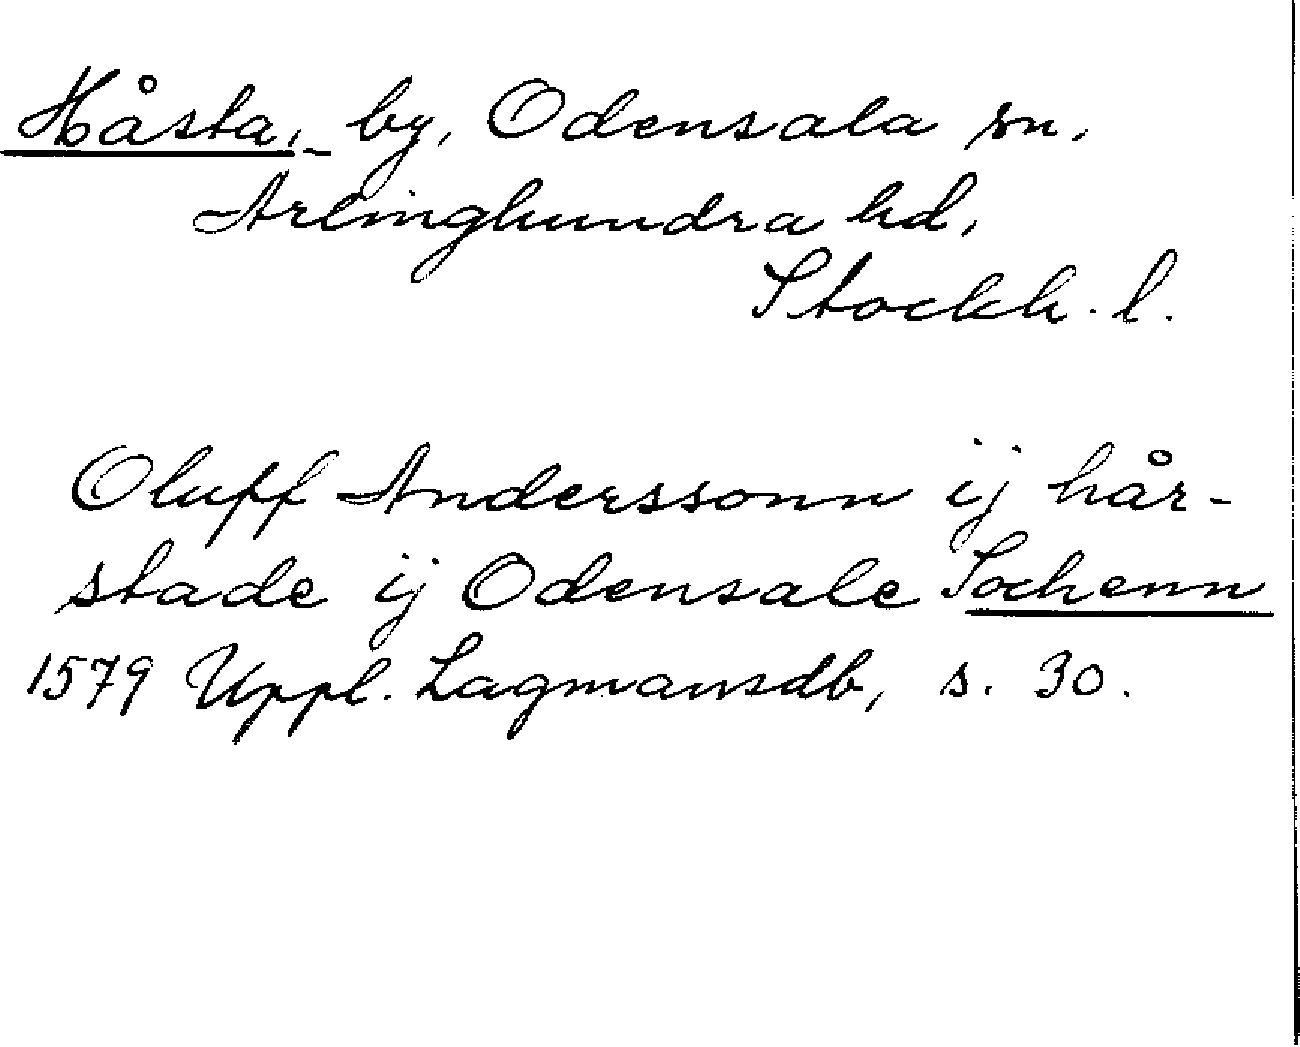 Håsta, by, Odensala sn,
Arlinghundra hd,
Stockh. l.
Oluff Anderssonn ij hår-
stade ij Odensale Sochenn
1579 Uppl. Lagmansdb, s. 30.